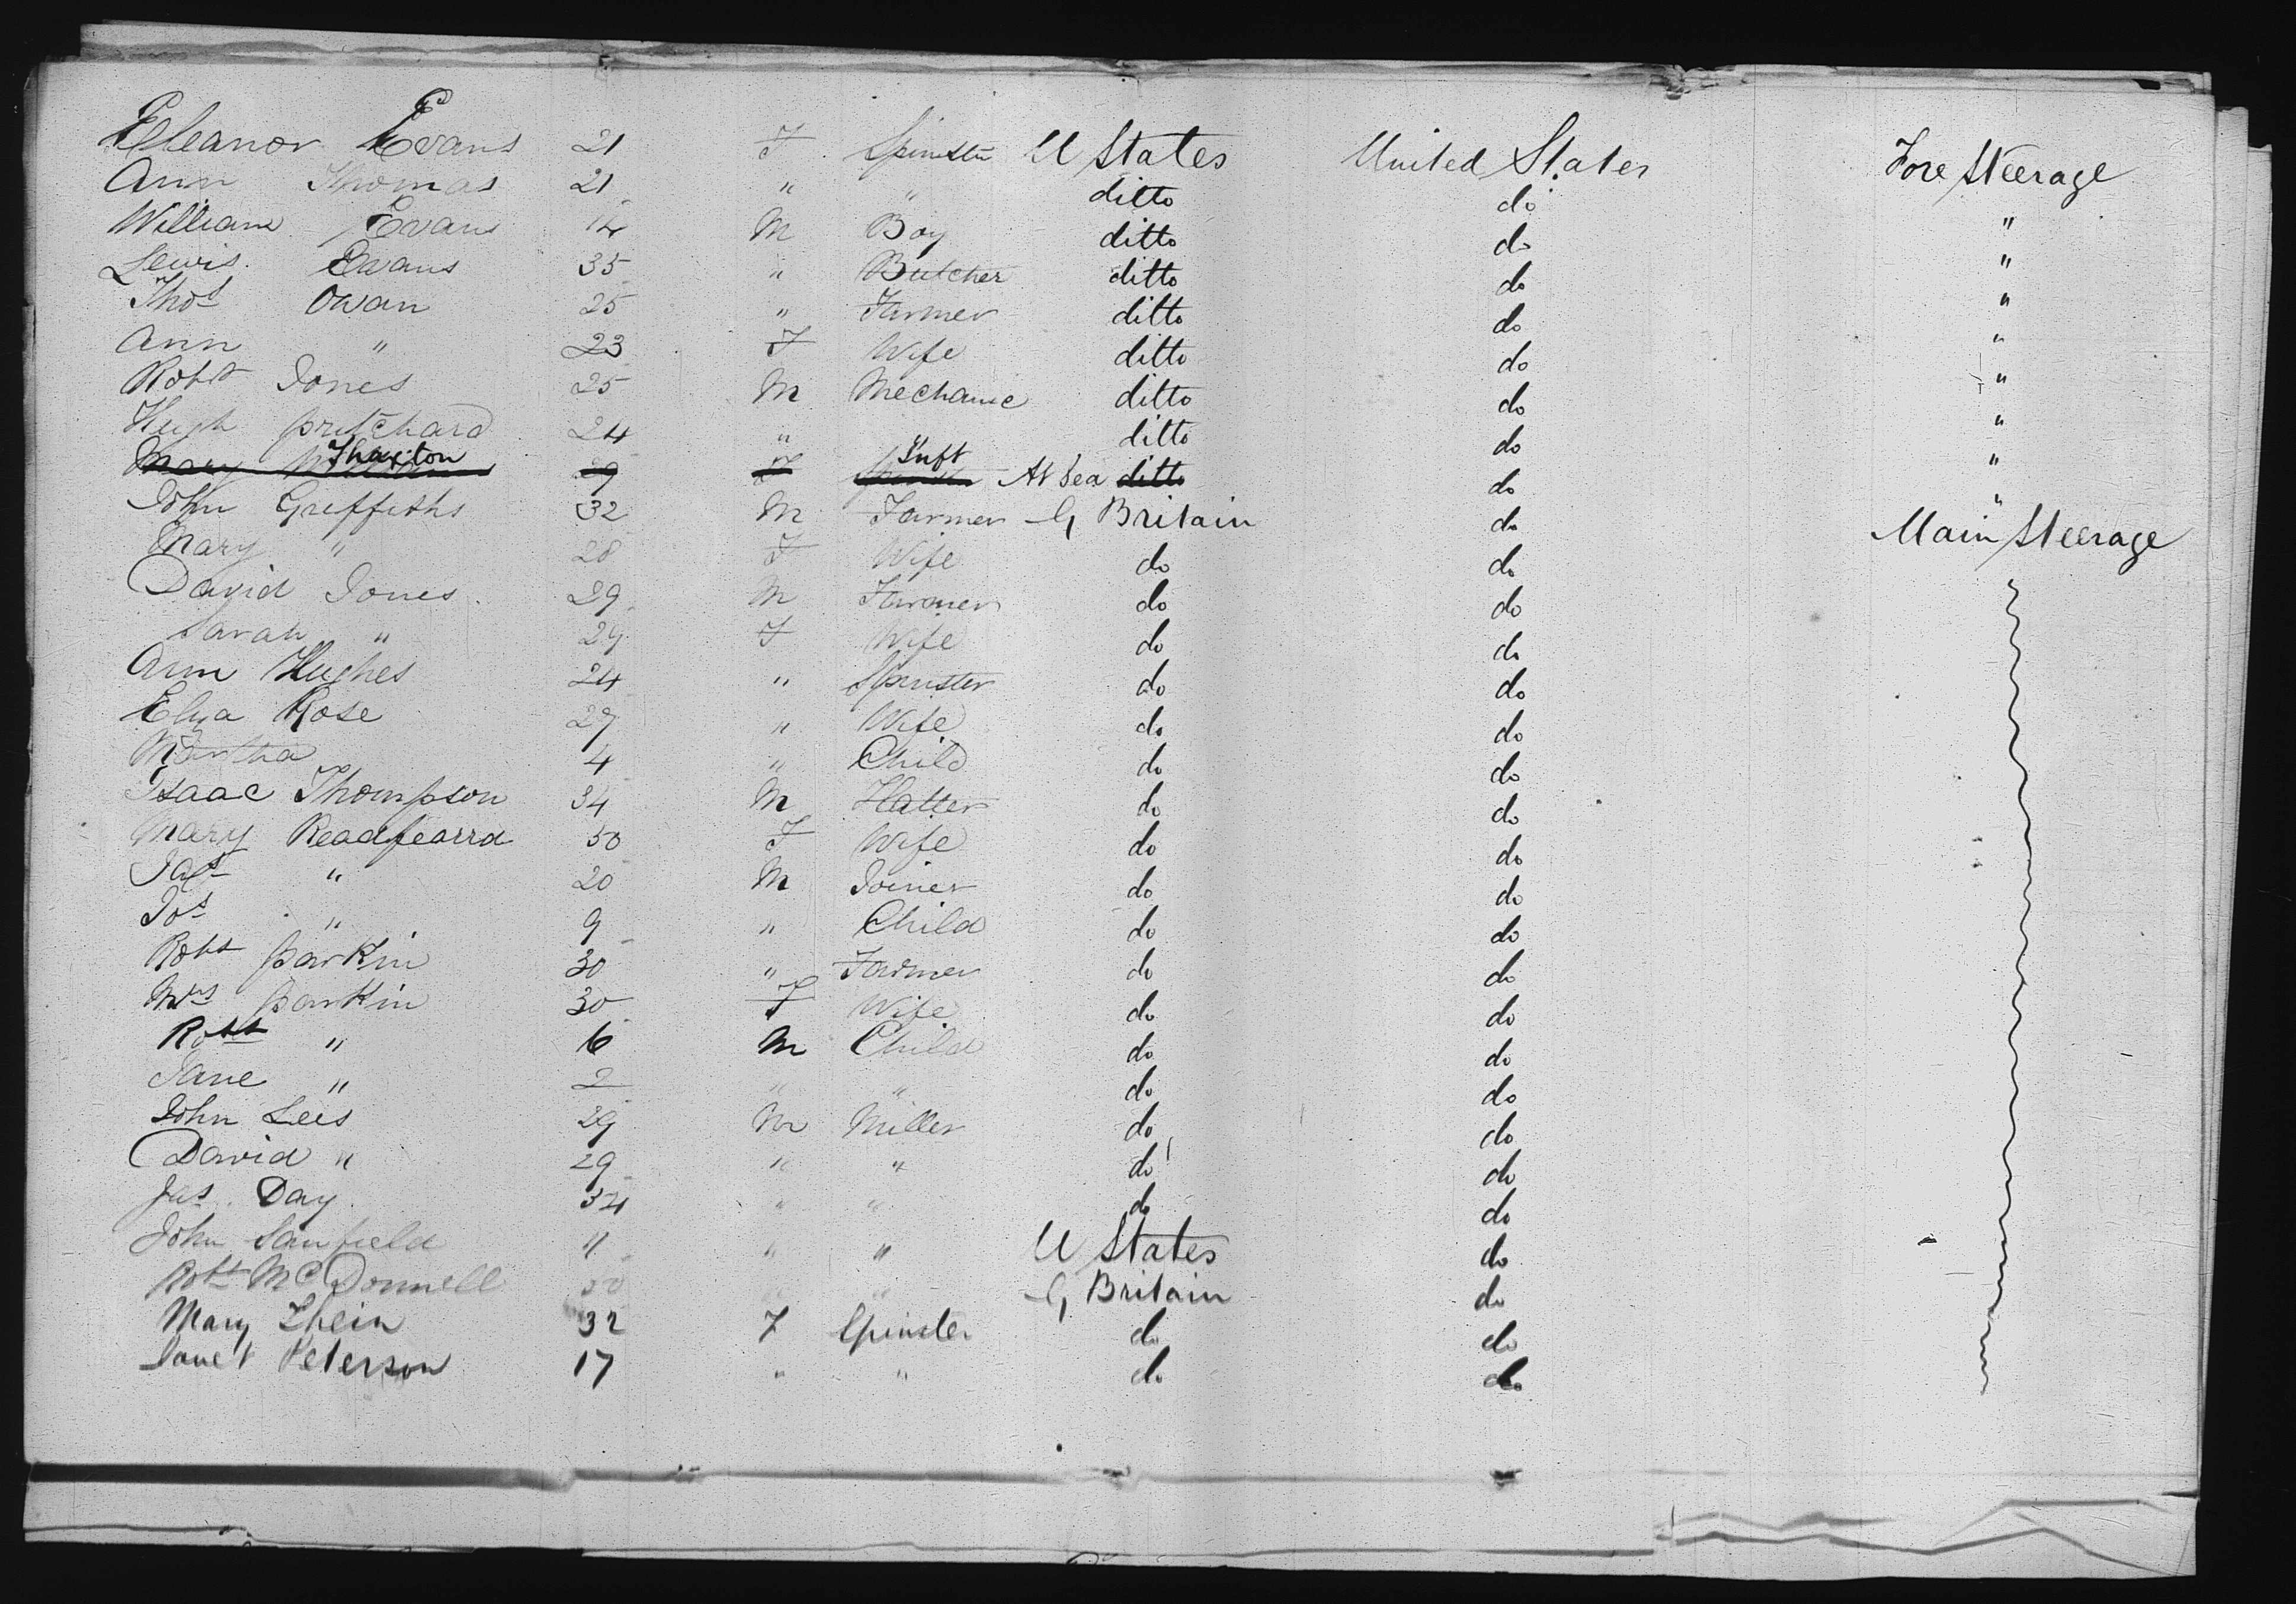 Eleanor Evans 21 F Spinster U States United States Fore Steerage
Ann Thomas 21 " " ditto do "
William Evans 14 M Boy ditto do "
Lewis Evans 35 " Butcher ditto do "
Thos Owan 25 " Farmer ditto do "
Ann " 23 F Wife ditto do "
Robt Jones 25 M Mechanic ditto do "
Hugh Pritchard 24 " " ditto do "
Mary Thaxton F Inft At Sea ditto do "
John Griffiths 32 M Farmer G Britain do Main Steerage
Mary " 28 F Wife do do
David Jones 29 M Farmer do do
Sarah " 29 F Wife do do
Ann Hughes 24 " Spinster do do
Eliza Rose 27 " Wife do do
Martha 4 " Child do do
Isaac Thompson 34 M Hatter do do
Mary Readfearrd 50 F Wife do do
Jas " 20 M Joiner do do
Jos " 9 " Child do do
Robt Parkin 30 " Farmer do do
Mrs Parkin 30 F Wife do do
Robt " 6 M Child do do
Jane " 2 " " do do
John Lees 29 M Miller do do
David " 29 " " do do
Jas. Day 34 " " do do
John " " U States do
Robt McDonnell 50 " " G Britain do
Mary 32 F Spinster do do
Janet Peterson 17 " " do do